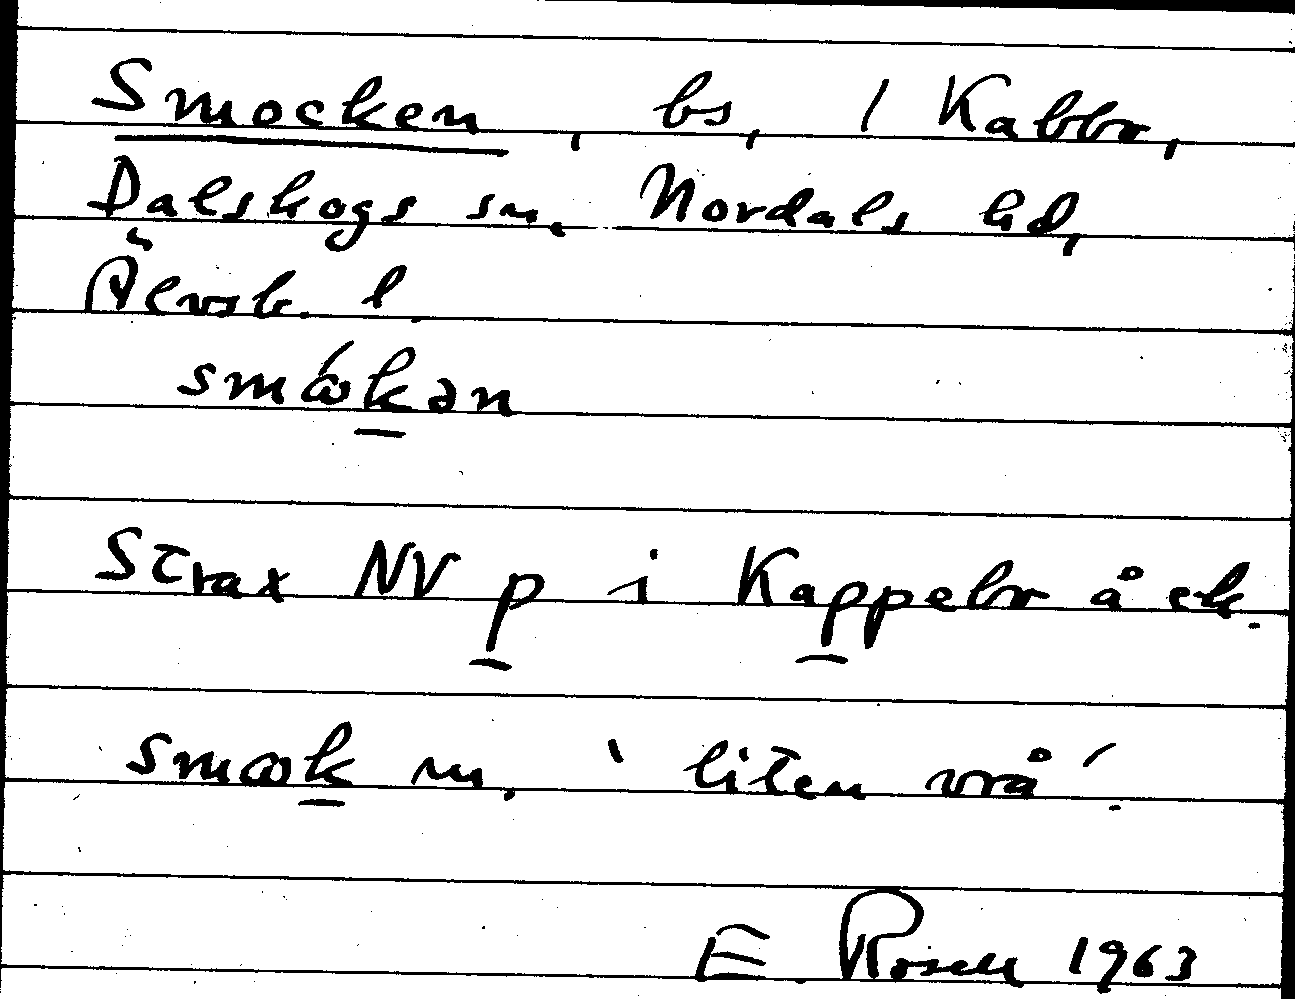 Smocken, bs, 1 Kabbr,
Dalskogs sn. Nordals hd,
Älvsb. l.
smɷ́k̲ən
Strax NV p̲ i Kap̲pebr å ek.
smɷk̲ m. 'liten vrå'.
E Rosell 1963